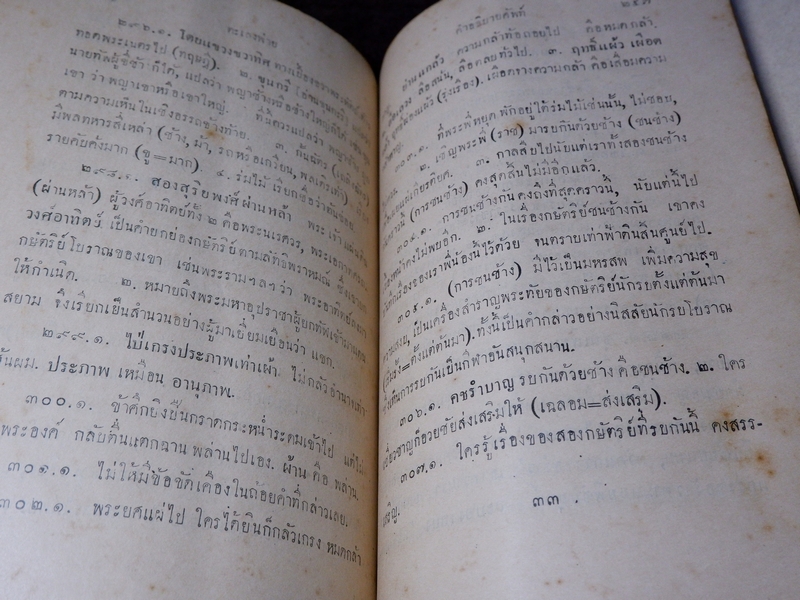 ตะเลงพ่าย
๒๙๖.๑. โดยแขวงขวาทิศ
ทอดพระเนตรไป (ทฤษฎี). ๒. ขุนกรี
นายทัลผู้ขี่ช้างก็ได้, แปลว่า พญาช้างหรือช้างใหญ่ก็ได้
เขา ว่า พญาเขาหรือเขาใหญ่. ที่นี้ควรแปลว่า พญาช้าง
ตามความเห็นในเชิงอรรถข้างท้าย. ๓.
มีพลทหารสี่เหล่า (ช้าง, ม้า, รถหรือเกวียน, พลเดรเท้า)
รายคับคั่งมาก (ชู=มาก). ๔. ร่มไม้ เรียกชื่อว่าต้นข่อย
๒๙๘.๑. สองสุริยพงศ์ผ่านหล้า พระเจ้าแผ่นดิน
(ผ่านหล้า) ผู้วงศ์อาทิตย์ทั้ง ๒ คือพระนเรศวร, พระเอกาทศรถ
วงศ์อาทิตย์ เป็นคำยกย่องกษัตริย์ตามลัทธิพราหมณ์ ซึ่ง
กษัตริย์โบราณของเขา เช่นพระรามฯลฯว่า พระอาทิตย์ลงมา
ให้กำเนิด. ๒. หมายถึงพระมหาอุปราชาผู้ยกทัพเข้ามา
สยาม จึงเรียกเป็นสำนวนอย่างผู้มาเยี่ยมเยือนว่า แขก.
๒๙๙.๑. ไป่เกรงประภาพเท่าเผ้า. ไม่กลัวอำนาจเท่า
เส้นผม. ประภาพ เหมือน อานุภาพ.
๓๐๐.๑. ข้าศึกยิงปืนกราดกระหน่ำระดมเข้าไป แต่ไม่
พระองค์ กลับตื่นแตกฉาน พล่านไปเอง. ผ้าน คือ พล่าน.
๓๐๑.๑. ไม่ให้มีข้อขัดเคืองในถ้อยคำที่กล่าวเลย.
๓๐๒.๑. พระยศแผ่ไป ใครได้ยินก็กลัวเกรง หมดกล้า
คำอธิบายศัพท์
๒๕๗
ย่านแกล้ว ความกล้าท้อถอยไป คือหมดกล้า.
ลือสนั่น, ลือตลบทั่วไป. ๓. ฤทธิ์แผ้ว เผือด
(รุ่งเรือง). เผือดทางความกล้า คือเสื่อมความ
๓๐๓.๑. ที่พระพี่หยุดพักอยู่ใต้ร่มไม้เช่นนั้น, ไม่ชอบ,
๒. เชิญพระพี่ (ราช) มารบกันด้วยช้าง (ชนช้าง)
เกียรติยศ. ๓. กาลสืบไปนับแต่เราทั้งสองชนช้าง
(การชนช้าง) คงสุดสิ้นไม่มีอีกแล้ว.
๓๐๔.๑. การชนช้างกัน คงถึงที่สุดคราวนี้, นับแต่นี้ไป
คงไม่พบอีก. ๒. ในเรื่องกษัตริย์ชนช้างกัน เขาคง
เรื่องของเราพี่น้องนี้ไว้ด้วย จนตราบเท่าฟ้าดินสิ้นศูนย์ไป.
๓๐๕.๑. (การชนช้าง) มีไว้เป็นมหรสพ เพิ่มความสุข
เป็นเครื่องสำราญพระทัยของกษัตริย์นักรบตั้งแต่ต้นมา
(=ตั้งแต่ต้นมา). ทั้งนี้เป็นคำกล่าวอย่างนิสสัยนักรบโบราณ
เห็นการรบกันเป็นกีฬาอันสนุกสนาน.
๓๐๖.๑. คชรำบาญ รบกันด้วยช้าง คือชนช้าง. ๒. ใคร
เชี่ยวชาญก็อวยชัยส่งเสริมให้ (เฉลอม=ส่งเสริม).
๓๐๗.๑. ใครรู้เรื่องของสองกษัตริย์ที่รบกันนี้ คงสรร-
เสริญ.
๓๓